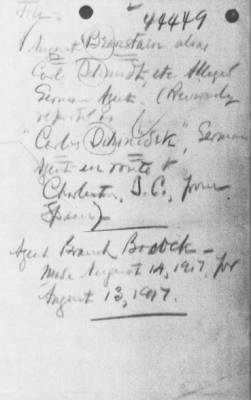 File: 44449
August Bernstein alias
Carl Schmidt, etc. Alleged
German Agent. (Previously
reported as
"Carlos Schmidt", German
Agent en route to
Charleston, S.C., from
Spain)
Agent Branch Bocock -
Made August 14, 1917, for
August 13, 1917.